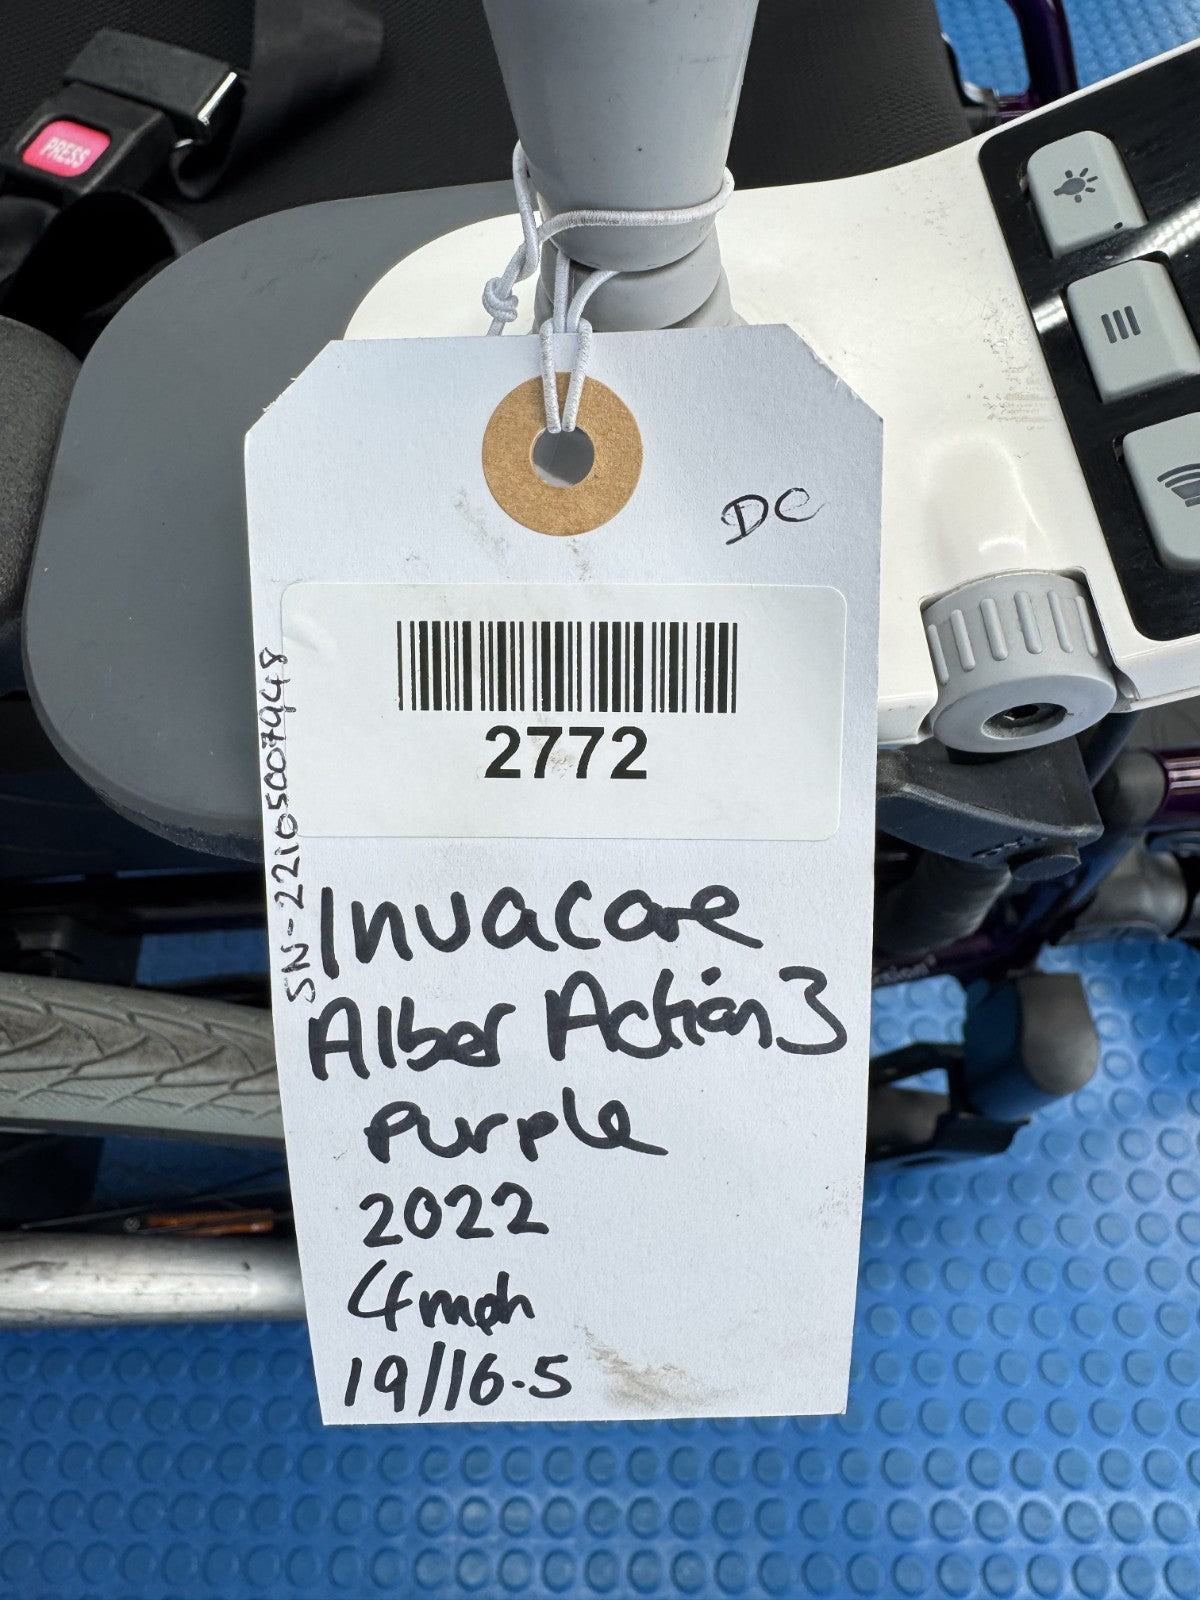 PRESS
DC
2772
SN-22105007948
Invacare
Alber Action 3
Purple
2022
4mph
19/16.5